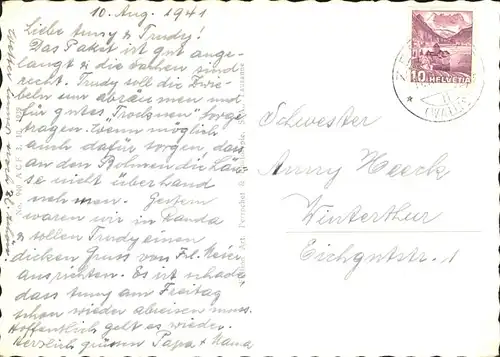 10. Aug. 1941
Liebe Anny & Trudy!
Das Paket ist gut ange-
langt & die Sachen sind
recht. Trudy soll die Zwie-
beln nur abräumen und
für gutes Trocknen sorge
tragen. Wenn möglich
auch dafür sorgen, dass
an den Bohnen die Läu-
se nicht überhand
nehmen. Gestern
waren wir in Randa
& sollen Trudy einen
dicken Gruss von Frl. Meier
ausrichten. Es ist schade,
dass Anny am Freitag
schon wieder abreisen muss.
Hoffentlich geht es wieder.
Herzlich grüssen Papa + Mama
No. 940 A C F
Art. Perrochet &
Lausanne
10 HELVETIA
(WALLIS)
Schwester
Anny Heeck
Winterthur
Eichgutstr. 1